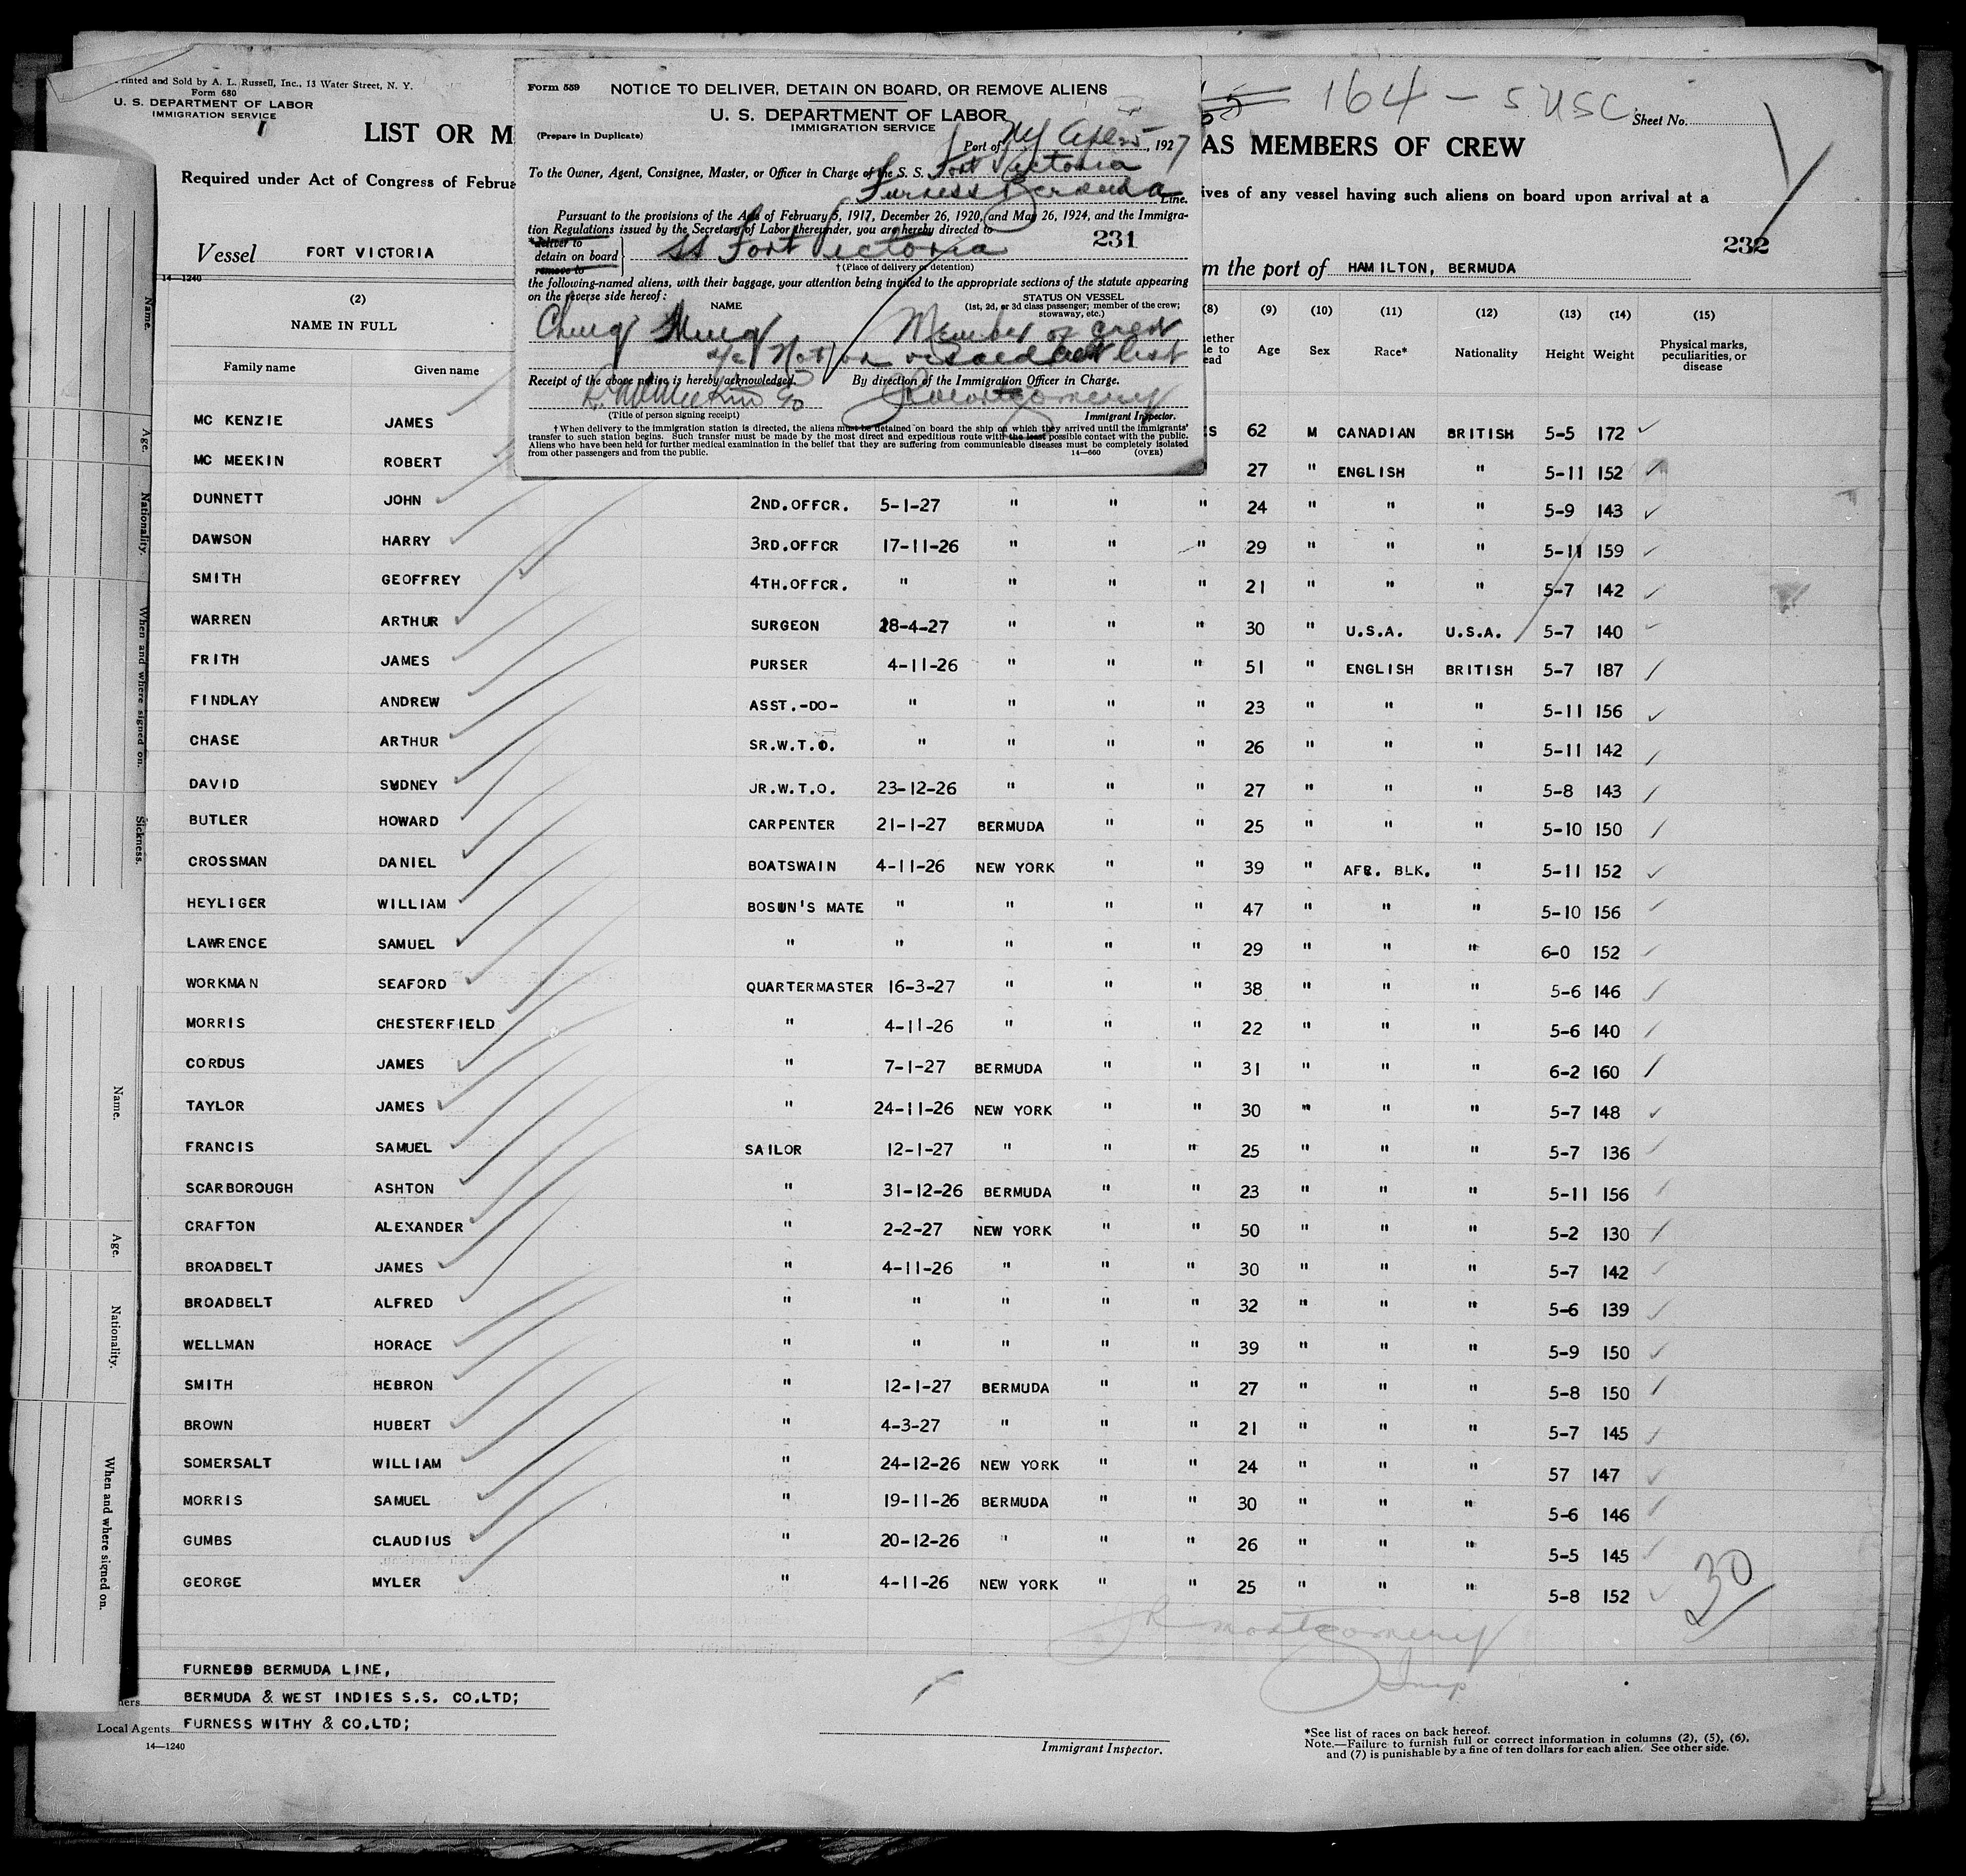 Printed and Sold by A. L. Russell, Inc., 13 Water Street, N. Y.
Form 680
U. S. DEPARTMENT OF LABOR
IMMIGRATION SERVICE
LIST OR M
AS MEMBERS OF CREW
164 - 5 USC
Sheet No.
Required under Act of Congress of Februa
ives of any vessel having such aliens on board upon arrival at a
Vessel FORT VICTORIA
232
m the port of HAMILTON, BERMUDA
14-1240
Form 559
NOTICE TO DELIVER, DETAIN ON BOARD, OR REMOVE ALIENS
U. S. DEPARTMENT OF LABOR
IMMIGRATION SERVICE
(Prepare in Duplicate)
Port of NY , 1927
To the Owner, Agent, Consignee, Master, or Officer in Charge of the S. S. Fort Victoria
Furness Bermuda Line.
Pursuant to the provisions of the Acts of February 5, 1917, December 26, 1920, and May 26, 1924, and the Immigra-
tion Regulations issued by the Secretary of Labor thereunder, you are hereby directed to
*deliver to
detain on board SS Fort Victoria 231
remove to
†(Place of delivery or detention)
the following-named aliens, with their baggage, your attention being invited to the appropriate sections of the statute appearing
on the reverse side hereof:
NAME
STATUS ON VESSEL
(1st, 2d, or 3d class passenger; member of the crew;
stowaway, etc.)
Member of crew
a/c Not on visaed list
Receipt of the above notice is hereby acknowledged.
By direction of the Immigration Officer in Charge.
(Title of person signing receipt)
Immigrant Inspector.
†When delivery to the immigration station is directed, the aliens must be detained on board the ship on which they arrived until the immigrants'
transfer to such station begins. Such transfer must be made by the most direct and expeditious route with the least possible contact with the public.
Aliens who have been held for further medical examination in the belief that they are suffering from communicable diseases must be completely isolated
from other passengers and from the public.
14—660 (OVER)
(2) (8) (9) (10) (11) (12) (13) (14) (15)
NAME IN FULL
Family name Given name
Age Sex Race* Nationality Height Weight Physical marks, peculiarities, or disease
MC KENZIE JAMES 62 M CANADIAN BRITISH 5-5 172
MC MEEKIN ROBERT 27 " ENGLISH " 5-11 152
DUNNETT JOHN 2ND.OFFCR. 5-1-27 " " " 24 " " " 5-9 143
DAWSON HARRY 3RD.OFFCR 17-11-26 " " " 29 " " " 5-11 159
SMITH GEOFFREY 4TH.OFFCR. " " " " 21 " " " 5-7 142
WARREN ARTHUR SURGEON 28-4-27 " " " 30 " U.S.A. U.S.A. 5-7 140
FRITH JAMES PURSER 4-11-26 " " " 51 " ENGLISH BRITISH 5-7 187
FINDLAY ANDREW ASST.-DO- " " " " 23 " " " 5-11 156
CHASE ARTHUR SR.W.T.O. " " " " 26 " " " 5-11 142
DAVID SYDNEY JR.W.T.O. 23-12-26 " " " 27 " " " 5-8 143
BUTLER HOWARD CARPENTER 21-1-27 BERMUDA " " 25 " " " 5-10 150
CROSSMAN DANIEL BOATSWAIN 4-11-26 NEW YORK " " 39 " AFR. BLK. " 5-11 152
HEYLIGER WILLIAM BOSUN'S MATE " " " " 47 " " " 5-10 156
LAWRENCE SAMUEL " " " " " 29 " " " 6-0 152
WORKMAN SEAFORD QUARTERMASTER 16-3-27 " " " 38 " " " 5-6 146
MORRIS CHESTERFIELD " 4-11-26 " " " 22 " " " 5-6 140
CORDUS JAMES " 7-1-27 BERMUDA " " 31 " " " 6-2 160
TAYLOR JAMES " 24-11-26 NEW YORK " " 30 " " " 5-7 148
FRANCIS SAMUEL SAILOR 12-1-27 " " " 25 " " " 5-7 136
SCARBOROUGH ASHTON " 31-12-26 BERMUDA " " 23 " " " 5-11 156
CRAFTON ALEXANDER " 2-2-27 NEW YORK " " 50 " " " 5-2 130
BROADBELT JAMES " 4-11-26 " " " 30 " " " 5-7 142
BROADBELT ALFRED " " " " " 32 " " " 5-6 139
WELLMAN HORACE " " " " " 39 " " " 5-9 150
SMITH HEBRON " 12-1-27 BERMUDA " " 27 " " " 5-8 150
BROWN HUBERT " 4-3-27 " " " 21 " " " 5-7 145
SOMERSALT WILLIAM " 24-12-26 NEW YORK " " 24 " " " 57 147
MORRIS SAMUEL " 19-11-26 BERMUDA " " 30 " " " 5-6 146
GUMBS CLAUDIUS " 20-12-26 " " " 26 " " " 5-5 145
GEORGE MYLER " 4-11-26 NEW YORK " " 25 " " " 5-8 152
30
JR Montgomery
Insp
FURNESS BERMUDA LINE,
BERMUDA & WEST INDIES S.S. CO.LTD;
Local Agents FURNESS WITHY & CO.LTD;
14—1240
Immigrant Inspector.
*See list of races on back hereof.
Note.—Failure to furnish full or correct information in columns (2), (5), (6),
and (7) is punishable by a fine of ten dollars for each alien. See other side.
Name.
Age.
Nationality.
When and where signed on.
Sickness.
Name.
Age.
Nationality.
When and where signed on.